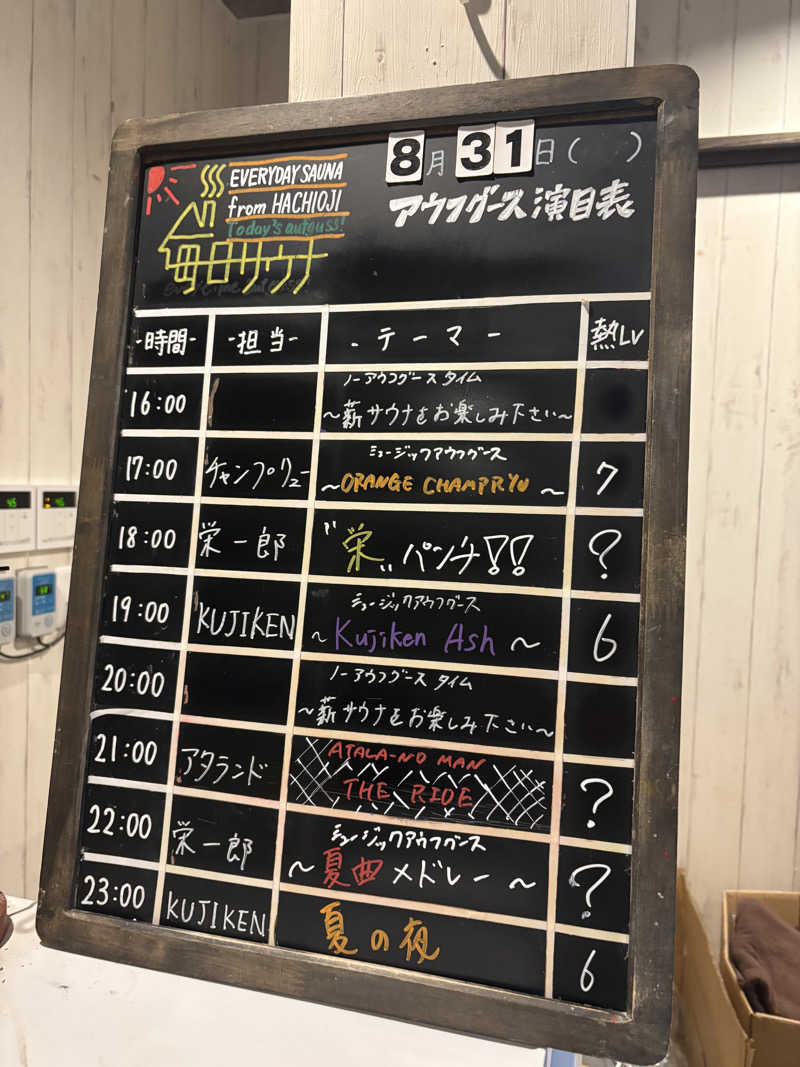 EVERYDAY SAUNA
from HACHIOJI
Today's aufguss!
毎日サウナ
8月31日( )
アウフグース演目表
-時間- -担当- -テーマー 熱Lv
16:00 ノーアウフグースタイム
~薪サウナをお楽しみ下さい~
17:00 チャンプリュー ミュージックアウフグース
~ORANGE CHAMPRYU~ 7
18:00 栄一郎 "栄"パンチ!! ?
19:00 KUJIKEN ミュージックアウフグース
~Kujiken Ash~ 6
20:00 ノーアウフグースタイム
~薪サウナをお楽しみ下さい~
21:00 アタランド ATALA-NO MAN
THE RIDE ?
22:00 栄一郎 ミュージックアウフグース
~夏曲メドレー~ ?
23:00 KUJIKEN 夏の夜 6